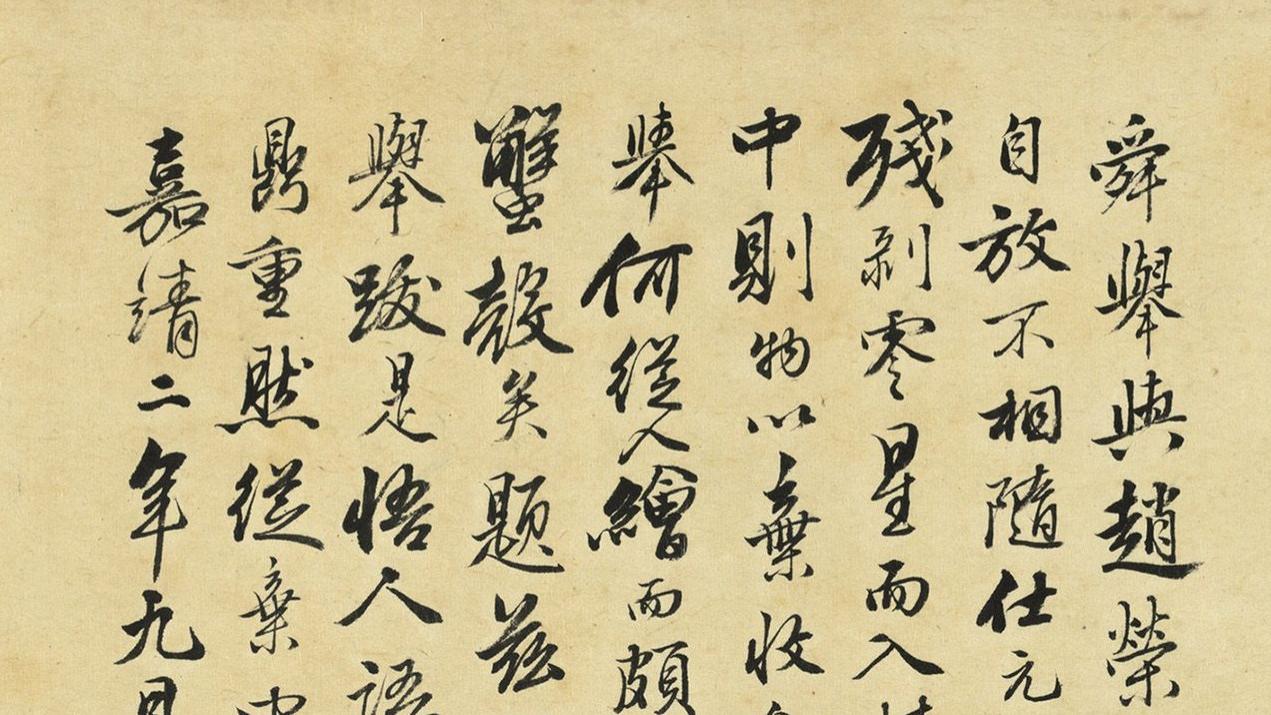 舜舉與趙榮
自放不相隨仕元
殘剥零星而入
中則物以棄收
舉何從人繪而頗
蟹殼矣題茲
舉跋是悟人語
鼎重然從棄中
嘉靖二年九月